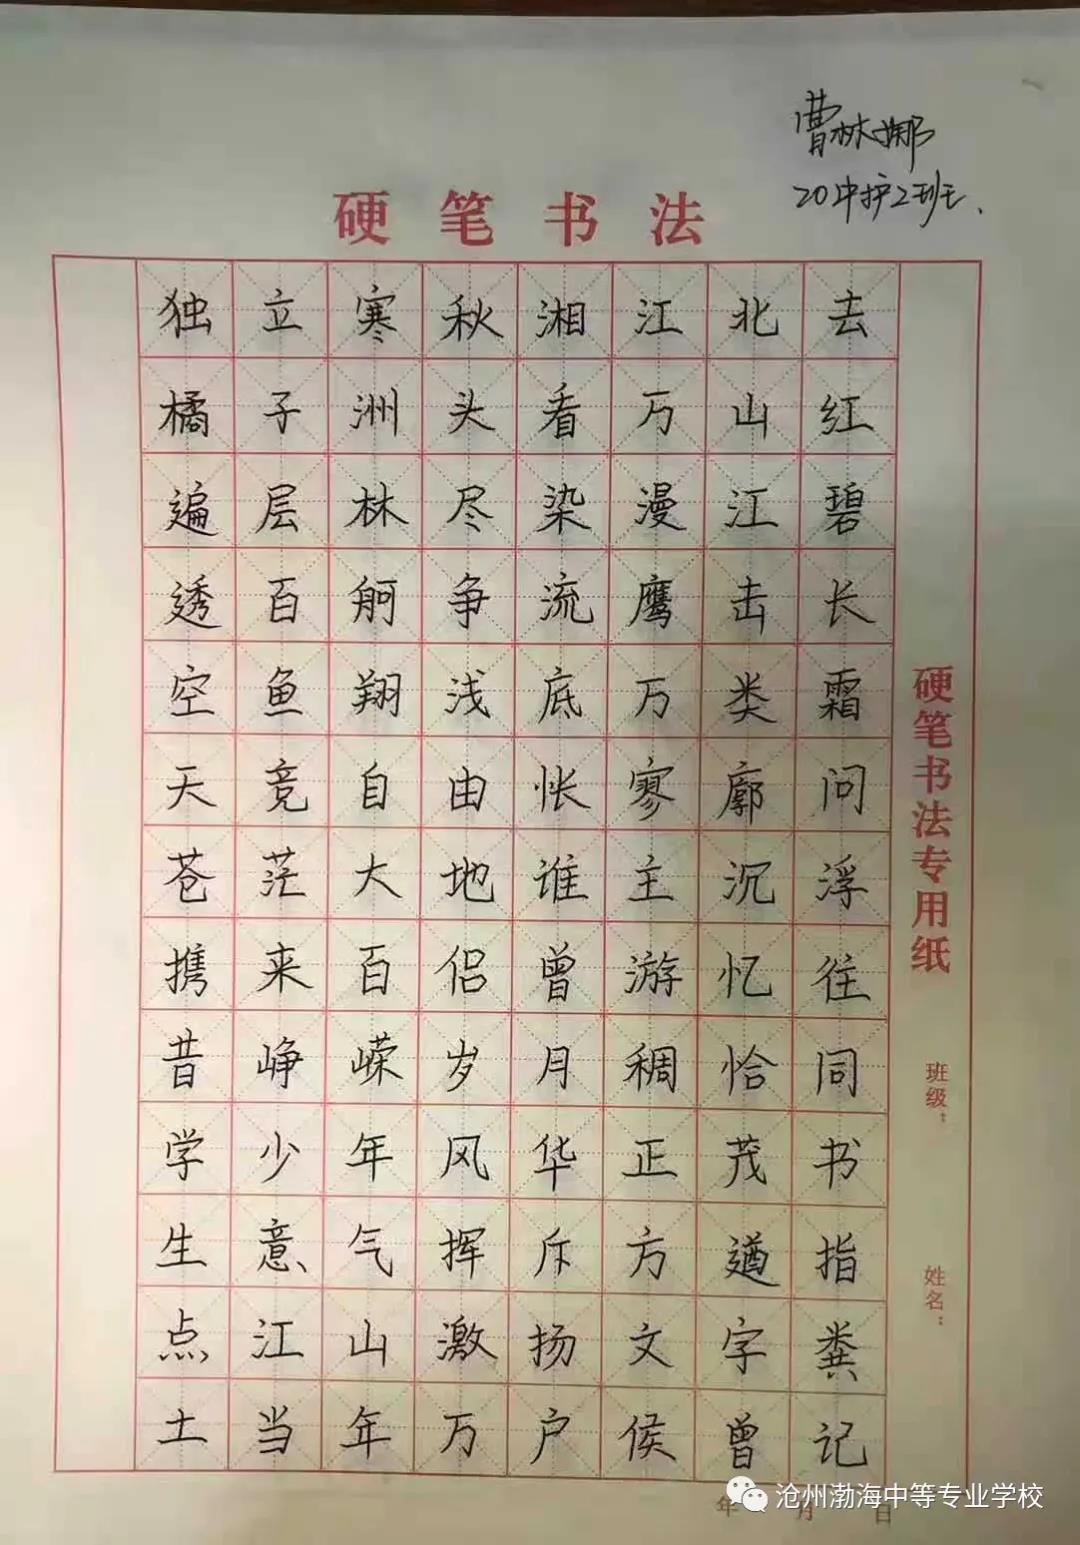 曹林娜
20中护2班、
硬笔书法
独立寒秋湘江北去
橘子洲头看万山红
遍层林尽染漫江碧
透百舸争流鹰击长
空鱼翔浅底万类霜
天竞自由怅寥廓问
苍茫大地谁主沉浮
携来百侣曾游忆往
昔峥嵘岁月稠恰同
学少年风华正茂书
生意气挥斥方遒指
点江山激扬文字粪
土当年万户侯曾记
硬笔书法专用纸
班级：
姓名：
年 月 日
沧州渤海中等专业学校